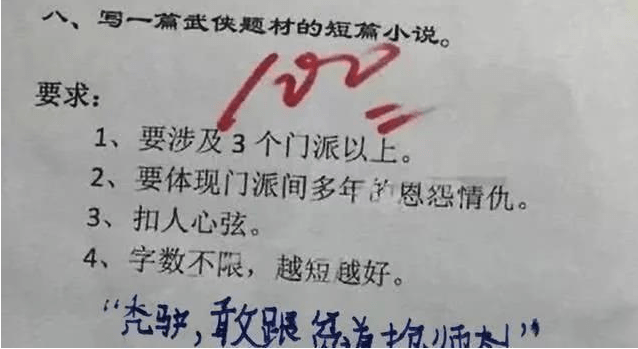 八、写一篇武侠题材的短篇小说。
100
要求：
1、要涉及3个门派以上。
2、要体现门派间多年的恩怨情仇。
3、扣人心弦。
4、字数不限，越短越好。
“秃驴，敢跟贫道抢师太”